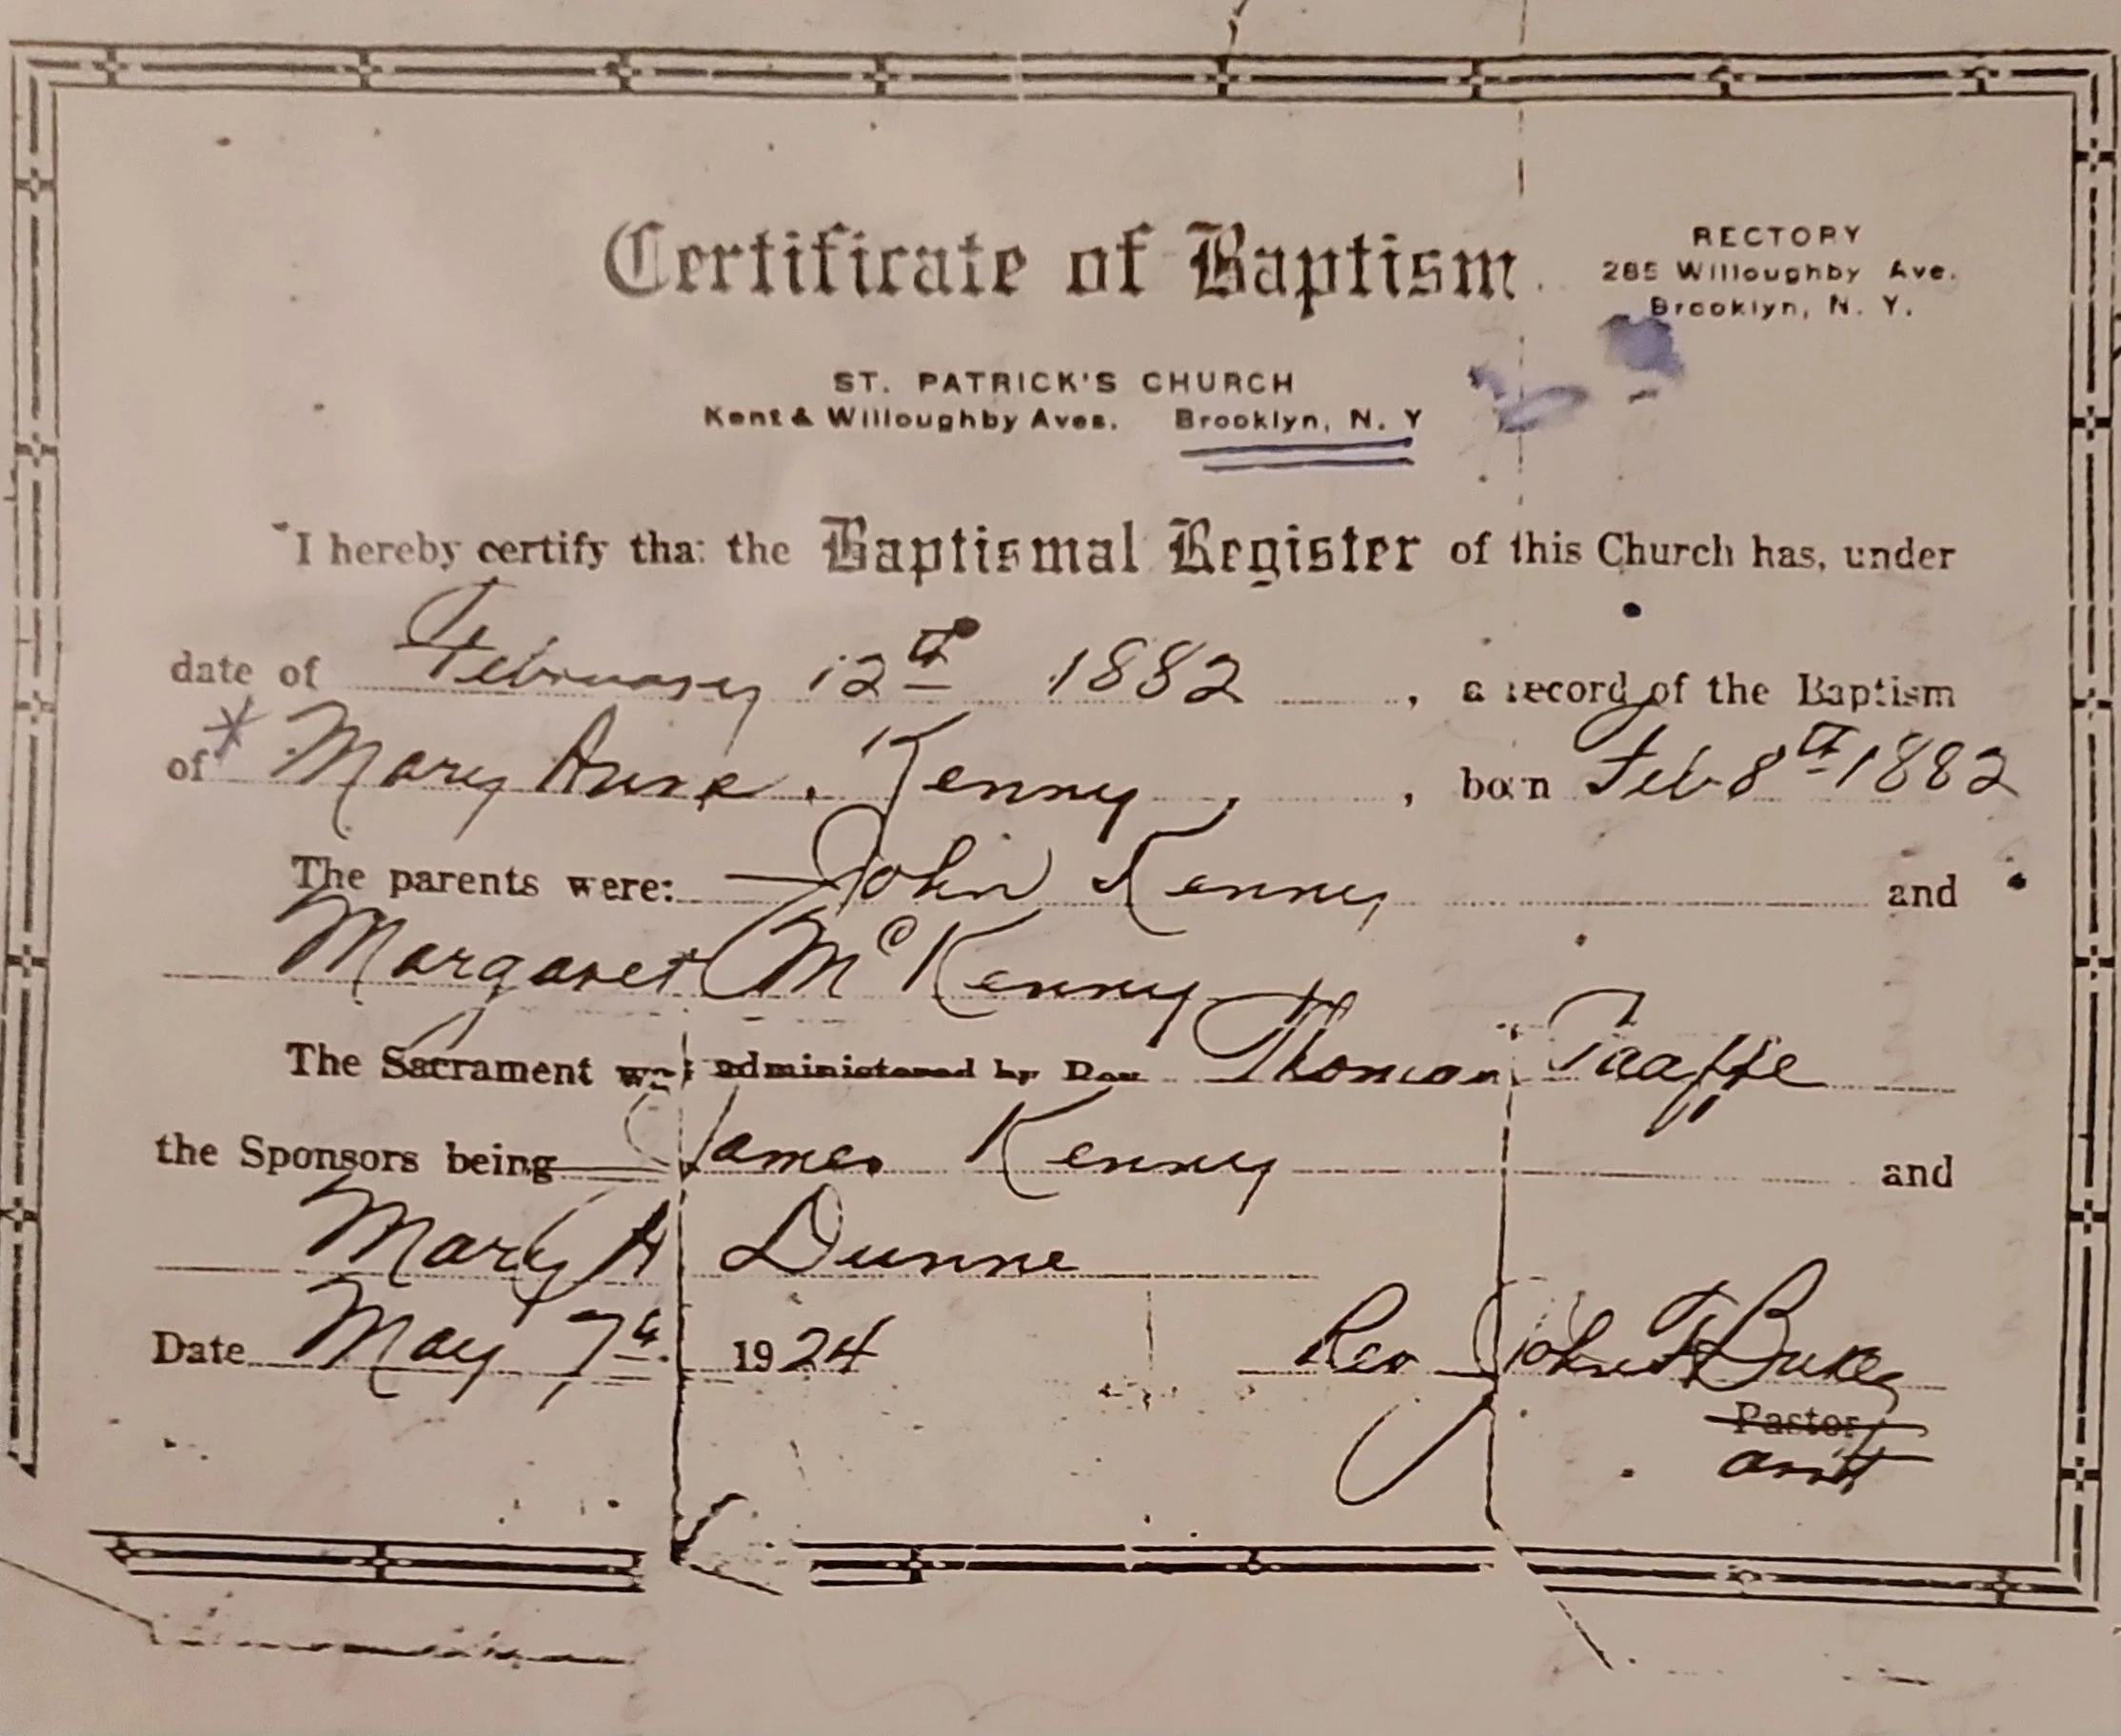 Certificate of Baptism
RECTORY
285 Willoughby Ave.
Brooklyn, N. Y.
ST. PATRICK'S CHURCH
Kent & Willoughby Aves. Brooklyn, N. Y
I hereby certify that the Baptismal Register of this Church has, under
date of February 12th 1882, a record of the Baptism
of * Mary Anne Kenny, born Feb 8th 1882
The parents were: John Kenny and
Margaret McKenny
The Sacrament was administered by Rev Thomas Taaffe
the Sponsors being James Kenny and
Mary A Dunne
Date May 7th 1924 Rev John F
Pastor
asst